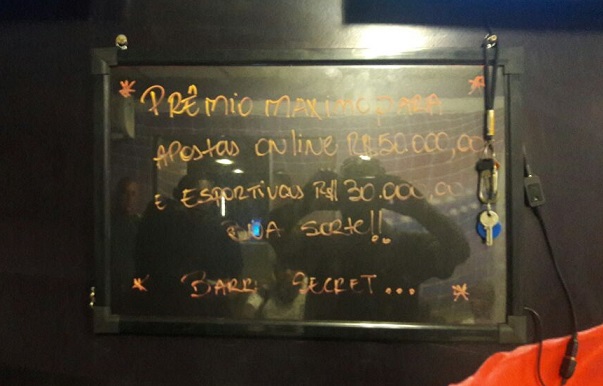 * PRÊMIO MAXIMO PARA *
APOSTAS ONLINE R$ 50.000,00
E ESPORTIVAS R$ 30.000,00
BOA SORTE!!
* BARR SECRET... *